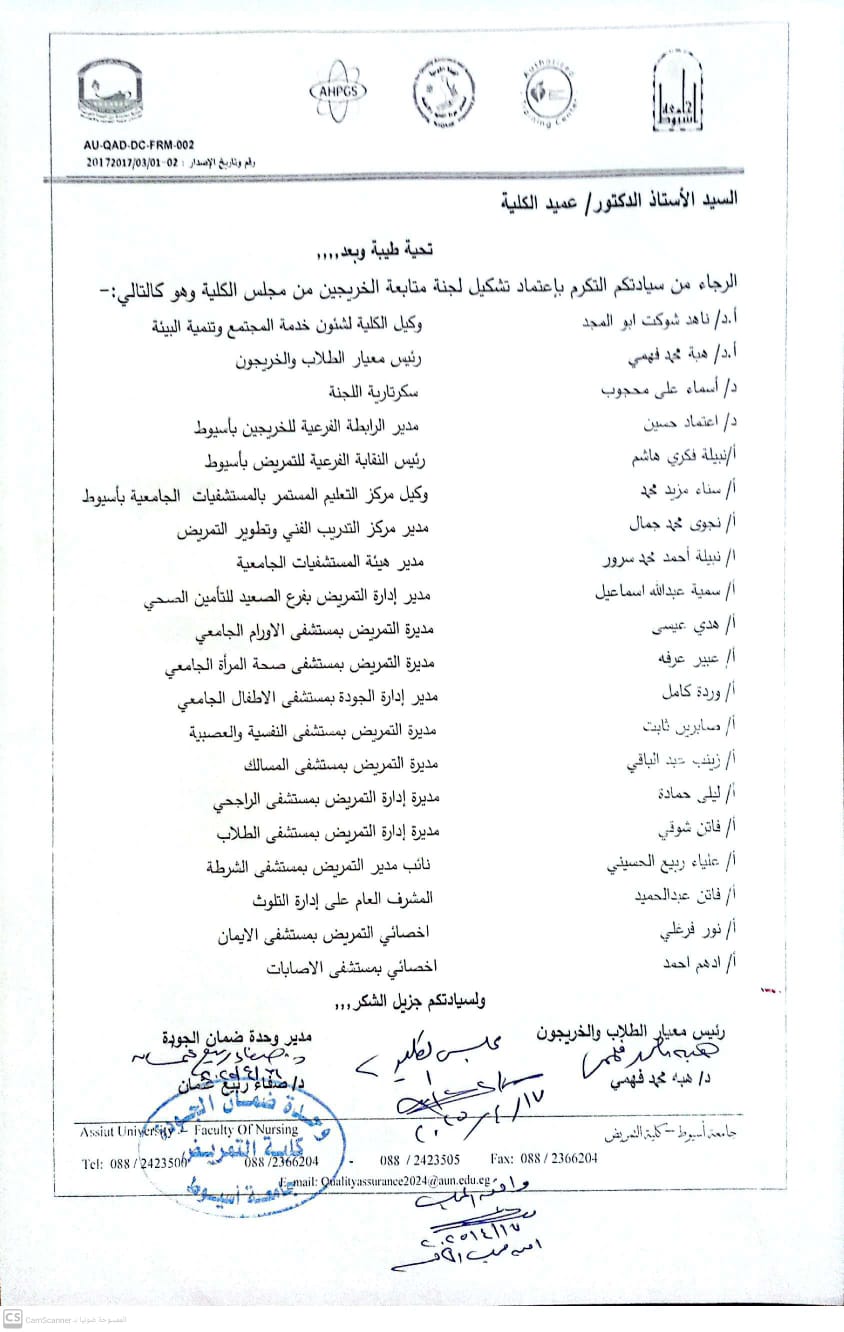 AHPGS
Authorized
Training Center
جامعة أسيوط
AU-QAD-DC-FRM-002
رقم وتاريخ الإصدار : 02-20172017/03/01
السيد الأستاذ الدكتور/ عميد الكلية
تحية طيبة وبعد,,,,
الرجاء من سيادتكم التكرم بإعتماد تشكيل لجنة متابعة الخريجين من مجلس الكلية وهو كالتالي:-
أ.د/ ناهد شوكت ابو المجد وكيل الكلية لشئون خدمة المجتمع وتنمية البيئة
أ.د/ هبة محمد فهمي رئيس معيار الطلاب والخريجون
د/ أسماء على محجوب سكرتارية اللجنة
د/ اعتماد حسين مدير الرابطة الفرعية للخريجين بأسيوط
أ/نبيلة فكري هاشم رئيس النقابة الفرعية للتمريض بأسيوط
أ/ سناء مزيد محمد وكيل مركز التعليم المستمر بالمستشفيات الجامعية بأسيوط
أ/ نجوى محمد جمال مدير مركز التدريب الفني وتطوير التمريض
ا/ نبيلة أحمد محمد سرور مدير هيئة المستشفيات الجامعية
أ/ سمية عبدالله اسماعيل مدير إدارة التمريض بفرع الصعيد للتأمين الصحي
أ/ هدي عيسى مديرة التمريض بمستشفى الاورام الجامعي
أ/ عبير عرفه مديرة التمريض بمستشفى صحة المرأة الجامعي
أ/ وردة كامل مدير إدارة الجودة بمستشفى الاطفال الجامعي
أ/ صابرين ثابت مديرة التمريض بمستشفى النفسية والعصبية
أ/ زينب عبد الباقي مديرة التمريض بمستشفى المسالك
أ/ ليلى حمادة مديرة إدارة التمريض بمستشفى الراجحي
أ/ فاتن شوقي مديرة إدارة التمريض بمستشفى الطلاب
أ/ علياء ربيع الحسيني نائب مدير التمريض بمستشفى الشرطة
أ/ فاتن عبدالحميد المشرف العام على إدارة التلوث
أ/ نور فرغلي اخصائي التمريض بمستشفى الايمان
أ/ ادهم احمد اخصائي بمستشفى الاصابات
ولسيادتكم جزيل الشكر,,,
رئيس معيار الطلاب والخريجون مدير وحدة ضمان الجودة
مجلس الكلية
د/ هبه محمد فهمي د/ صفاء ربيع عثمان
٢٠٢٥/٤/١٧
وحدة ضمان الجودة
كلية التمريض
جامعة أسيوط
جامعة أسيوط – كلية التمريض Assiut University – Faculty Of Nursing
Tel: 088 /2423500 088 /2366204 - 088 / 2423505 Fax: 088 / 2366204
E-mail: Qualityassurance2024@aun.edu.eg
وافق المجلس
٢٠٢٥/٤/١٧
CS CamScanner الممسوحة ضوئيا بـ